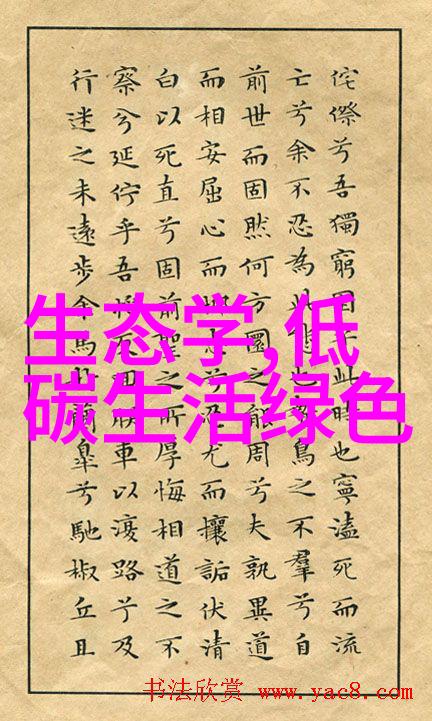 侘傺兮吾獨窮困乎此時也寧溘死而流
亡兮余不忍為此態也鷙鳥之不羣兮自
前世而固然何方圜之能周兮夫孰異道
而相安屈心而抑志兮忍尤而攘詬伏清
白以死直兮固前聖之所厚悔相道之不
察兮延佇乎吾將反回朕車以復路兮及
行迷之未遠步余馬於蘭臯兮馳椒丘且
生态学,低
碳生活绿色
书法欣赏 www.yac8.com